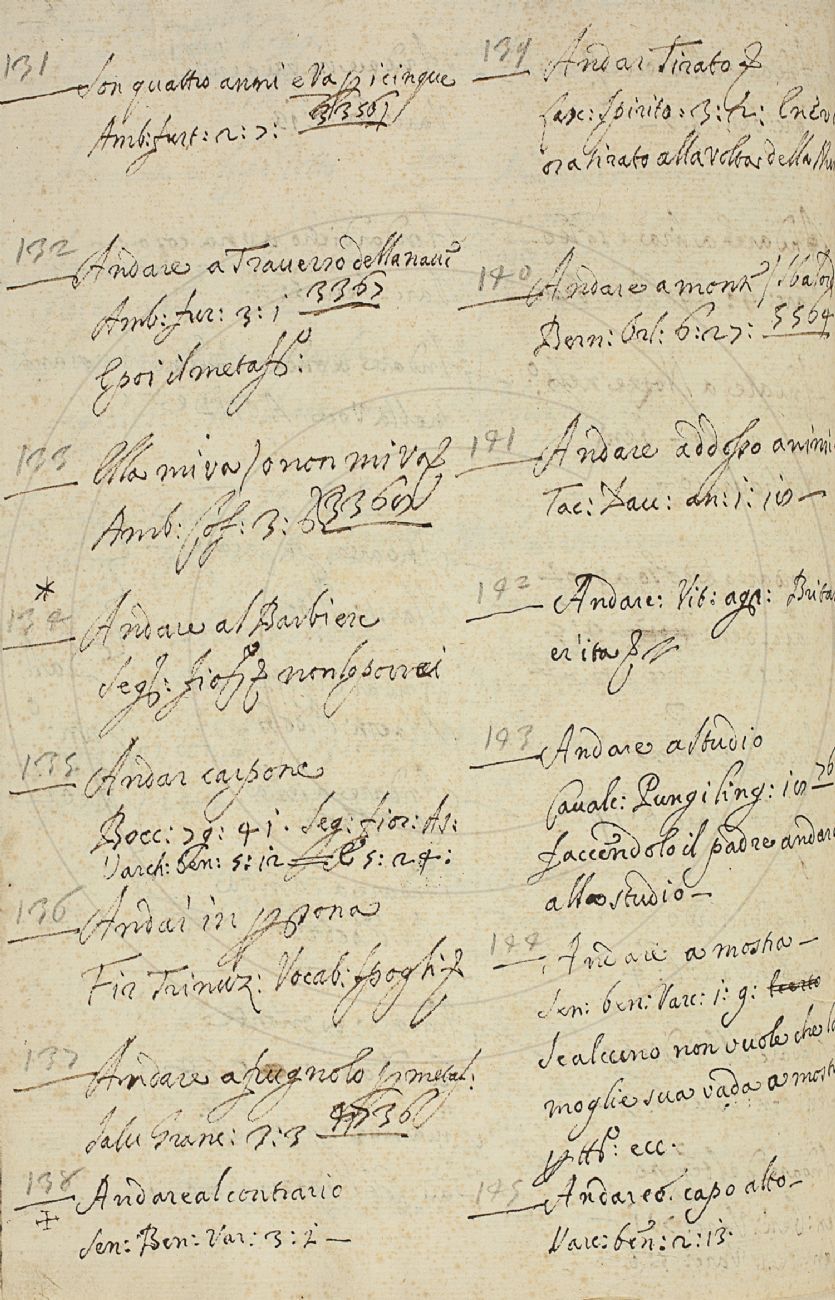 131
Son quattro anni e va pi cinque
Amb: furt: 2: 7: 33567
132
Andare a Traverso della nave
Amb: fur: 3: i 3367
E poi il metaff:
133
Ella mi va, o non mi va
Amb: Cof: 3: 3367
*
134
Andare al Barbiere
Seg: fior non le porrei
135
Andar carpone
Bocc: 79: 41. Seg: fior: As:
Varch: ben: 5: 12 E 5: 24:
136
Andar in persona
Fir Trinuz: Vocab: spogli
137
Andare a frugnolo p metaf:
Salv Granc: 3: 3 36
138
Andare al contrario
Sen: Ben: Var: 3: 1 —
139
Andar Tirato
Lasc: Spirito: 3: 2:
ora tirato alla volta della
140
Andare a monte
Bern: Orl: 6: 27: 5564
141
Andare addosso a nimi
Tac: Dav: an: 1: 10 —
142
Andare: Vit: agr: Brita
er' ita
143
Andare a studio
Cavalc: Pungiling: 10 76
faccendolo il padre andare
allo studio —
144
Andare a mostra —
Sen: ben: Varc: 1: 9:
Se alcuno non vuole che la
moglie sua vada a most
ecc.
145
Andare capo alto —
Varc: ben: 2: 13.